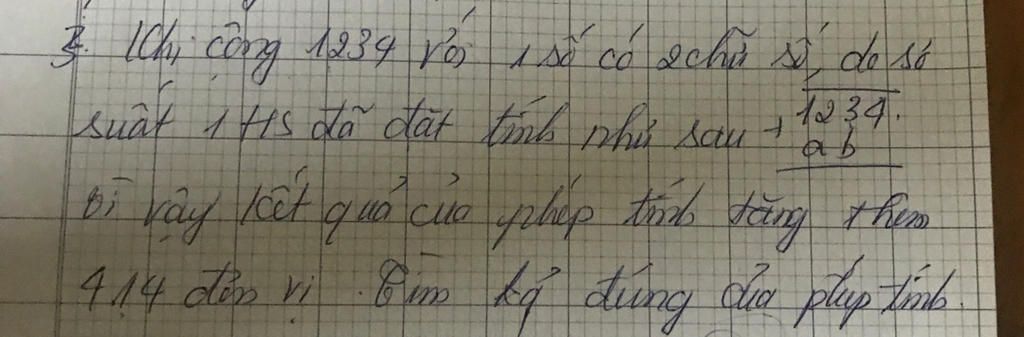 3. Khi cộng 1234 với 1 số có 2 chữ số, do sơ
suất 1 HS đã đặt tính như sau + 1234
ab
Vì vậy kết quả của phép tính tăng thêm
414 đơn vị. Tìm kq đúng của phép tính.